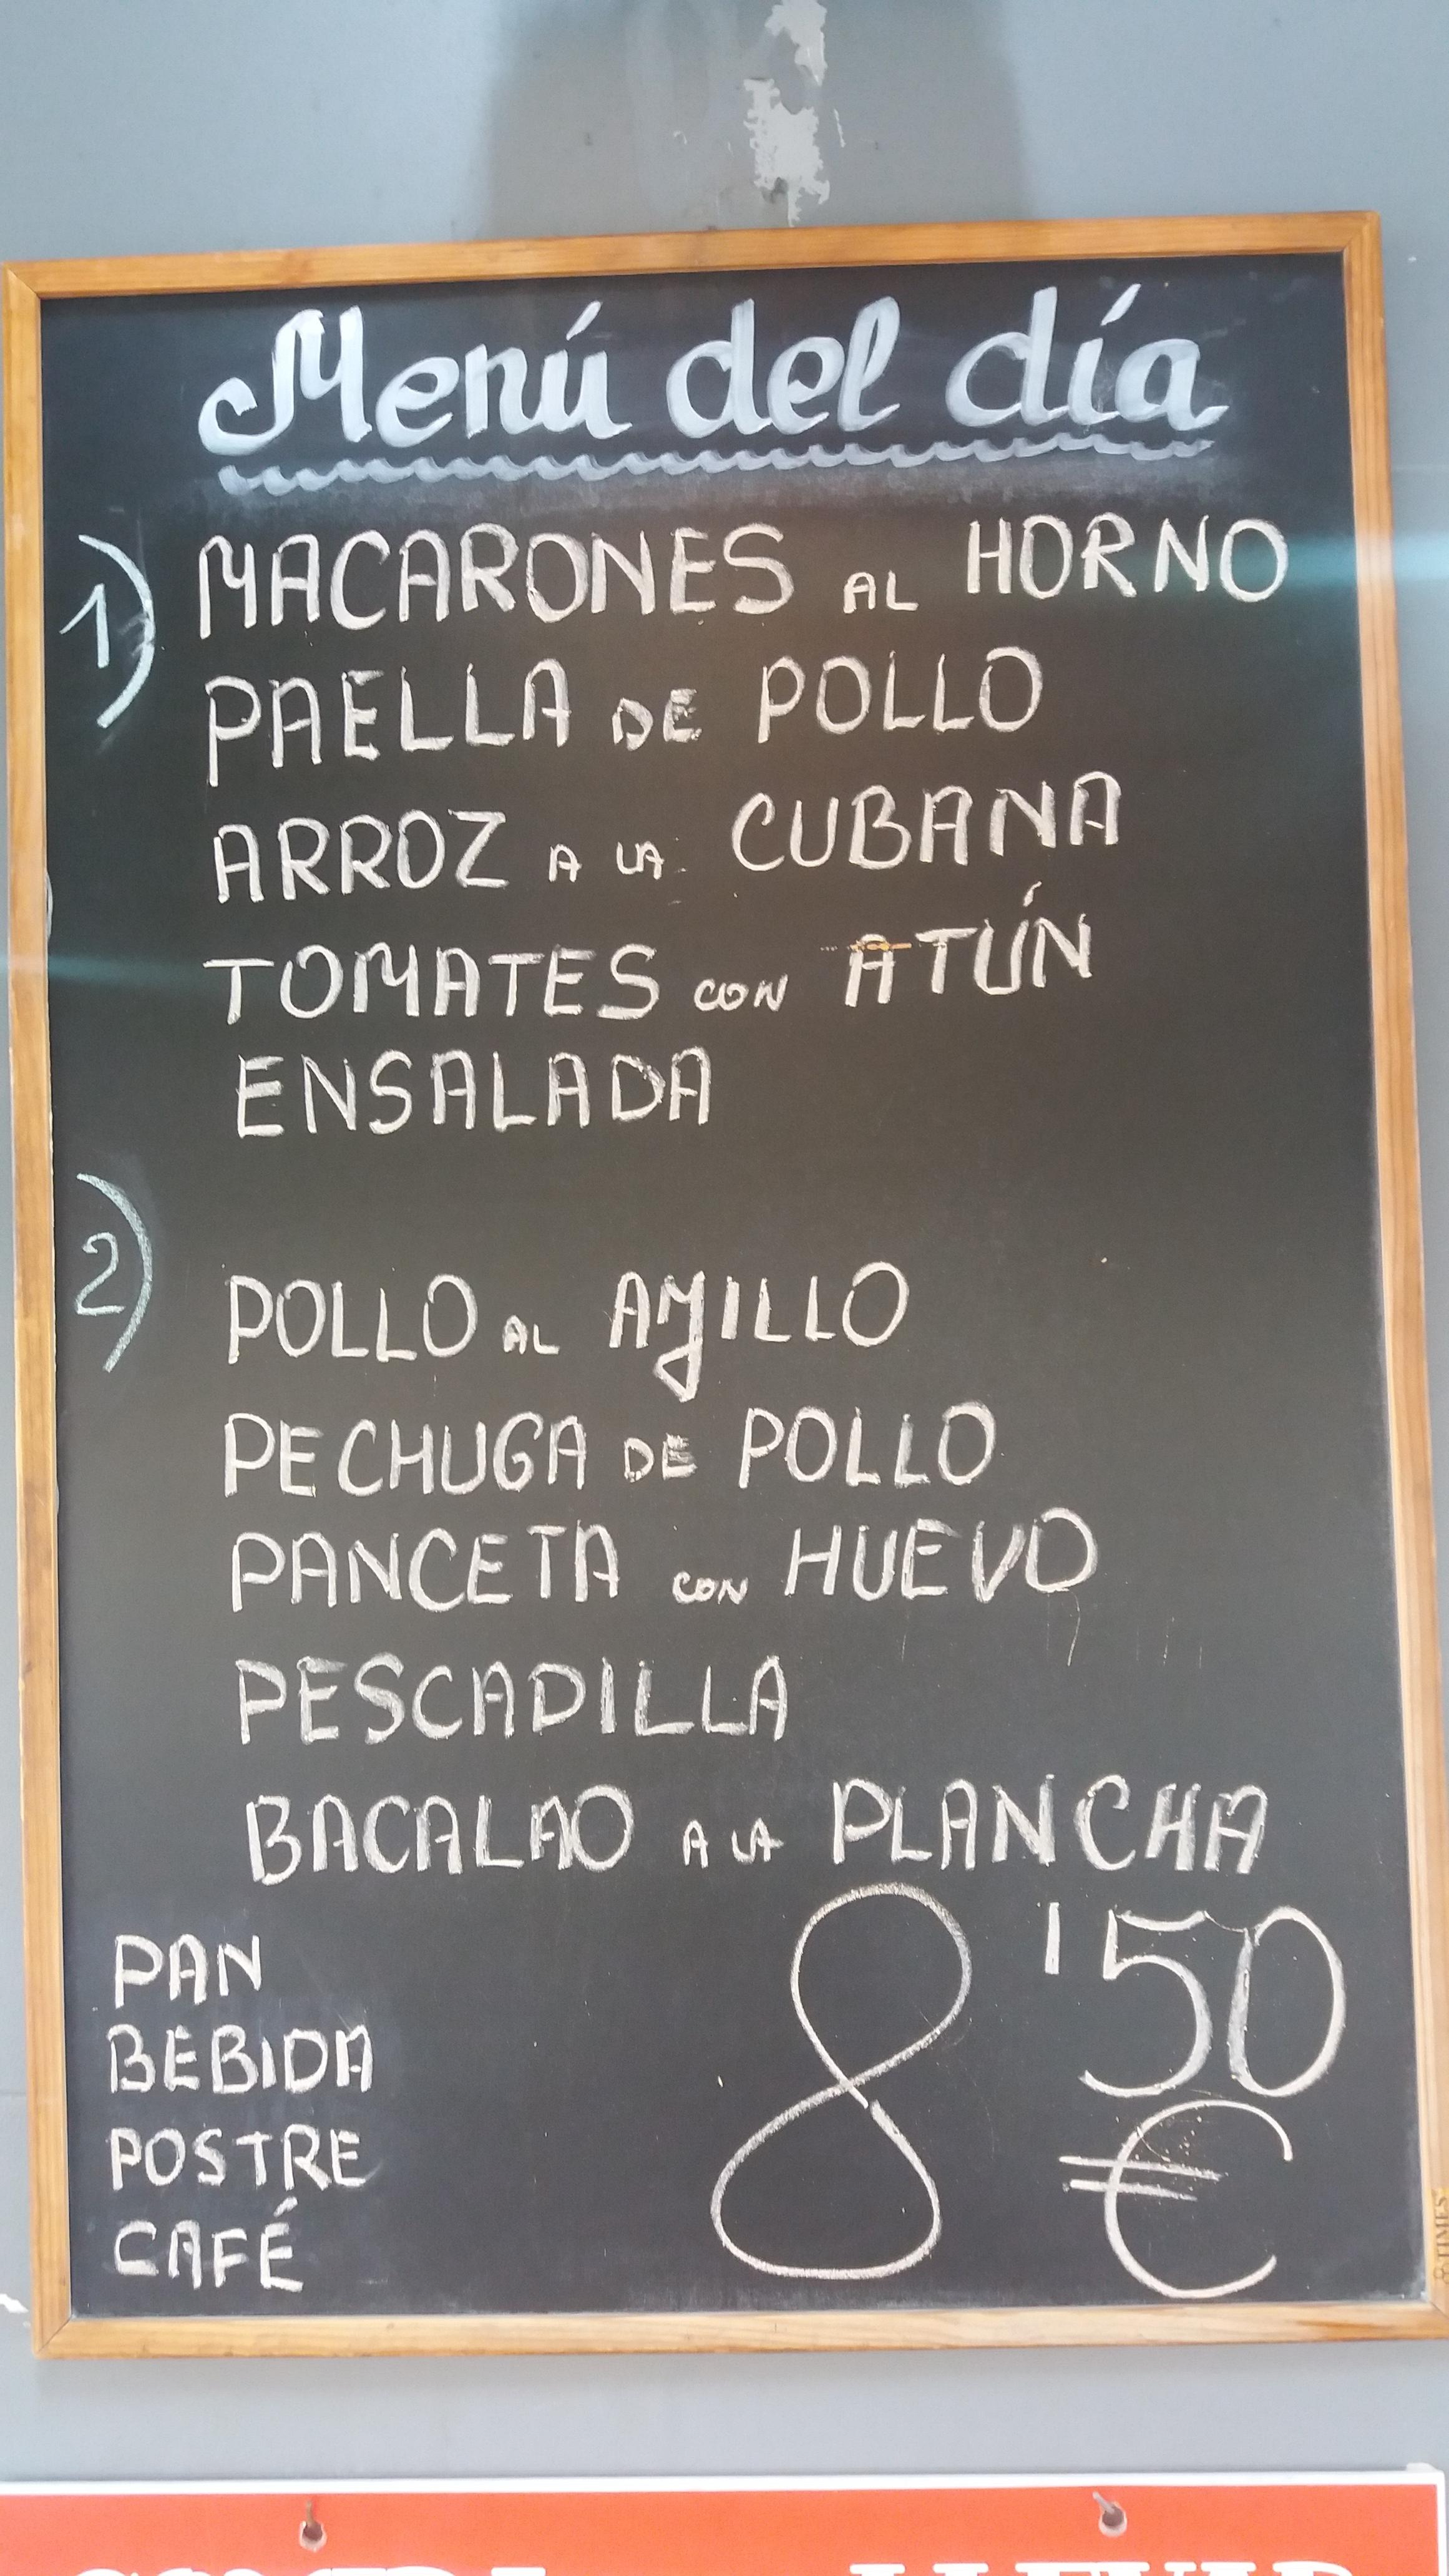 Menú del día
1) MACARONES AL HORNO
PAELLA DE POLLO
ARROZ A LA CUBANA
TOMATES CON ATÚN
ENSALADA
2) POLLO AL AJILLO
PECHUGA DE POLLO
PANCETA CON HUEVO
PESCADILLA
BACALAO A LA PLANCHA
PAN
BEBIDA
POSTRE
CAFÉ
8'50 €